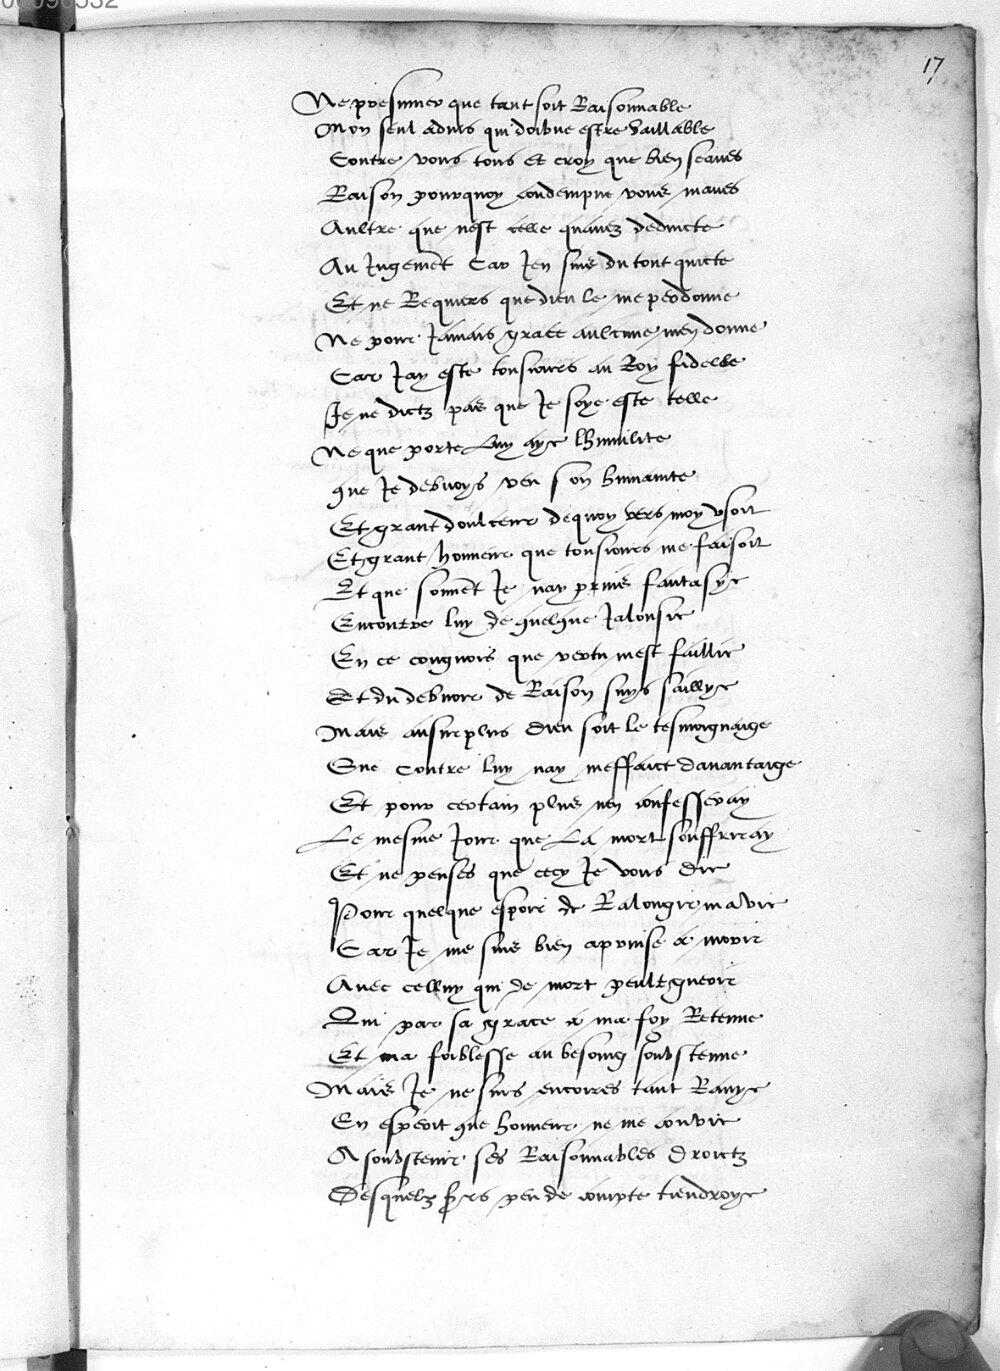 17
Ne presumer que tant soit Raisonnable
Mon seul aduis qui doibue estre vaillable
Contre vous tous Et croy que bien scaues
Raison pourquoy condempne vous maues
Aultre que nest celle quauez deduicte
Au Jugement Car Jen suis du tout quicte
Et ne Requiers que dieu le me perdonne
Ne pour Jamais grace aulcune men donne
Car Jay este tousiours au Roy fidelle
Je ne dictz pas que Je soye este telle
Ne que porte Luy aye lhumilite
que Je debuoys veu son humanite
Et grant doulceur dequoy vers moy vsoit
Et grant honneur que tousiours me faisoit
Et que souuent Je nay prins fantasye
Encontre luy de quelque Jalousie
En ce congnois que vertu mest faillie
Et du debuoir de Raison suys saillye
Mais ausurplus dieu soit le tesmoignaige
Que contre luy nay meffaict dauantaige
Et pour certain plus nen confesseray
Le mesme Jour que La mort souffriray
Et ne penses que cecy Je vous die
Pour quelque espoir de Ralongir ma vie
Car Je me suis bien aprinse a morir
Auec celluy qui de mort peult guerir
Qui par sa grace a ma foy Retenue
Et ma foiblesse au besoing soubstenue
Mais Je ne suis encores tant Rauye
En esperit que honneur ne me conuie
A soubstenir ses Raisonnables droictz
Desquelz peu de compte tiendroye